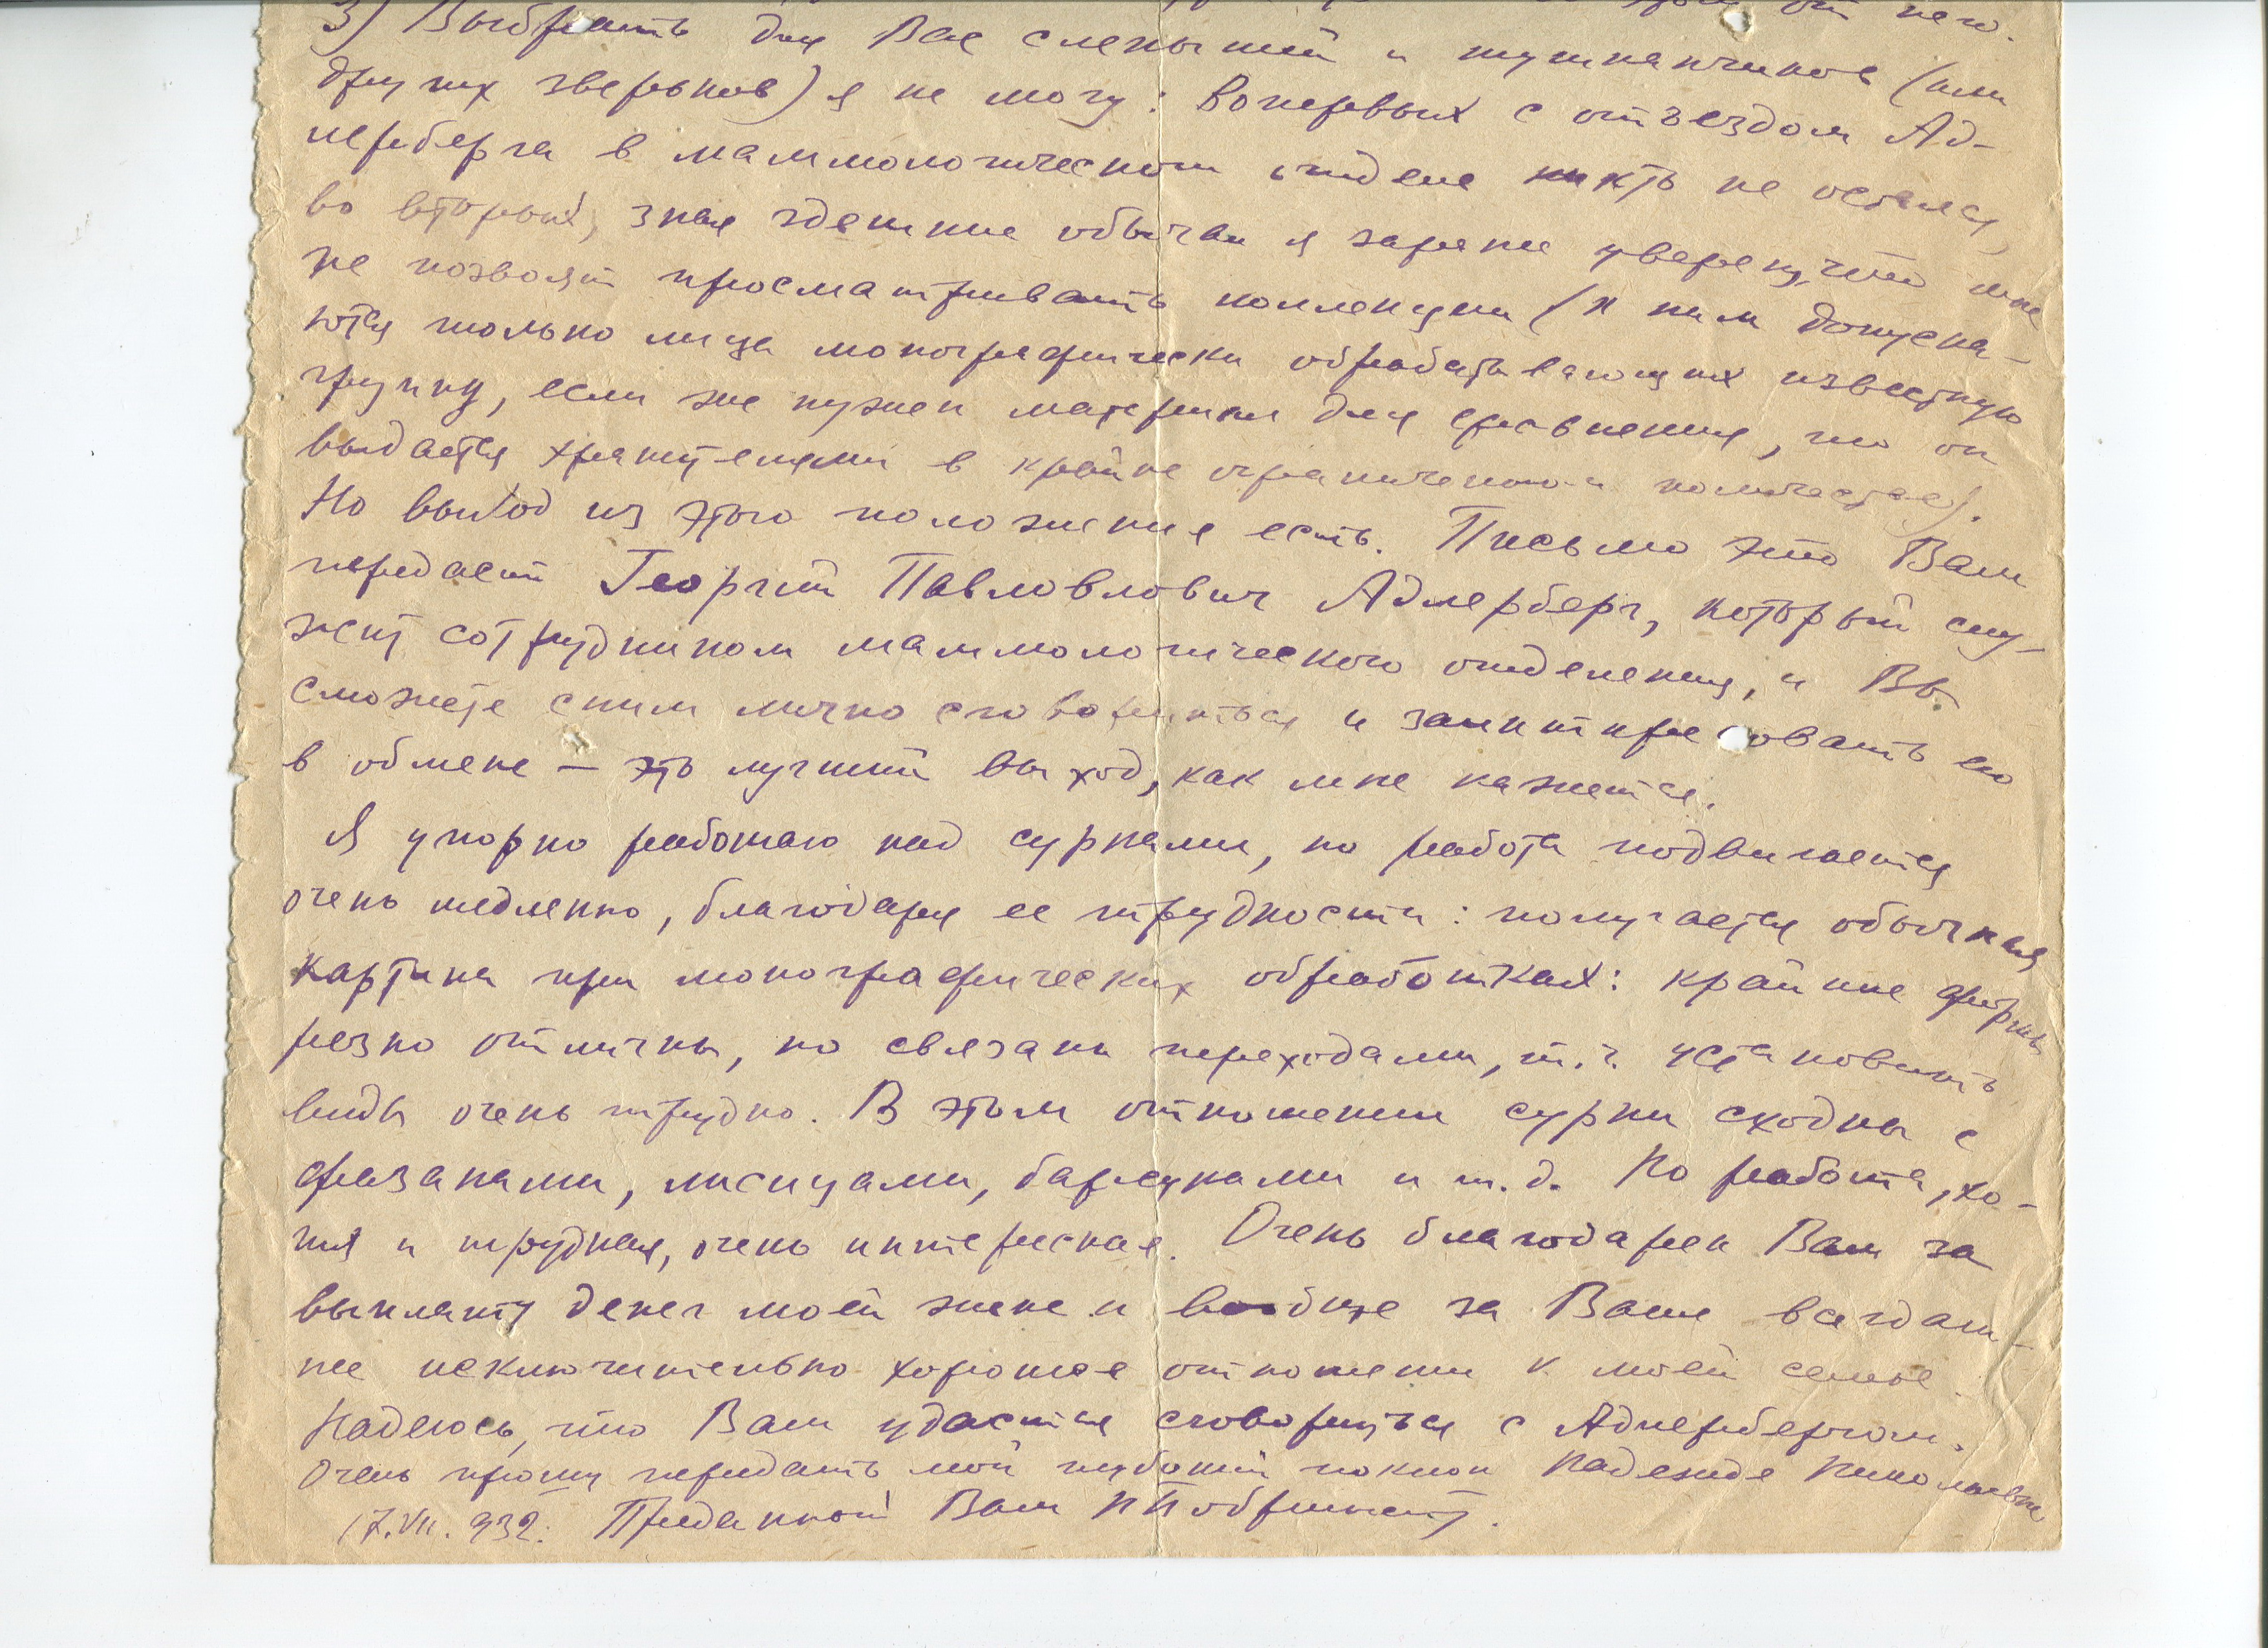 от него.
3) Выбрать для Вас слепышей и тушканчиков (или
других зверьков) я не могу: вопервых с отъездом Ад-
лерберга в маммологическом отделе никто не остался,
во вторых, зная здешние обычаи я заранее уверен, что мне
не позволят просматривать коллекции (к ним допуска-
ются только лица монографически обрабатывающих известную
группу, если же нужен материал для сравнения, то он
выдается хранителями в крайне ограниченом количестве).
Но выход из этого положения есть. Письмо это Вам
передаст Георгий Павловлович Адлерберг, который слу-
жит сотрудником маммологического отделения, и Вы
сможете с ним лично сговориться и заинтересовать его
в обмене — это лучший выход, как мне кажется.
Я упорно работаю над сурками, но работа подвигается
очень медленно, благодаря ее трудности: получается обычная
картина при монографических обработках: крайние формы
резко отличны, но связаны переходами, т.ч. установить
виды очень трудно. В этом отношении сурки сходны с
фазанами, лисицами, барсуками и т.д. Но работа, хо-
тя и трудная, очень интересная. Очень благодарен Вам за
выплату денег моей жене и вообще за Ваше всегдаш-
нее исключительно хорошее отношение к моей семье.
Надеюсь, что Вам удастся сговориться с Адлербергом.
Очень прошу передать мой глубокий поклон Надежде Николаевне
17.VII.932. Преданный Вам